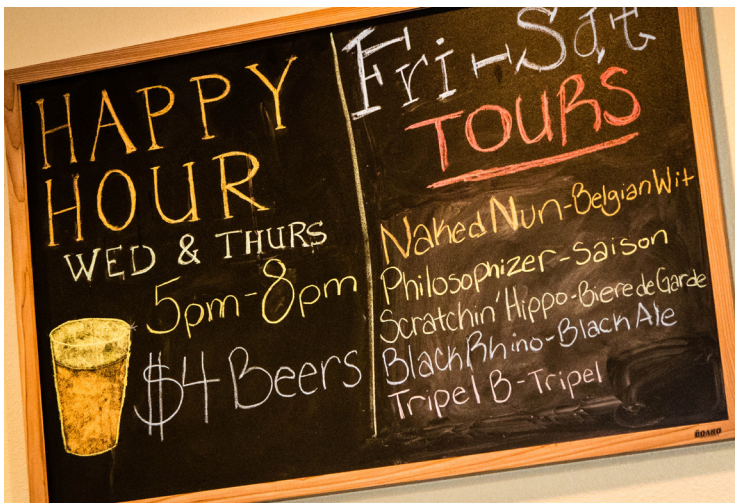 HAPPY
HOUR
WED & THURS
5pm-8pm
$4 Beers
Fri-Sat
TOURS
Naked Nun-Belgian Wit
Philosophizer-Saison
Scratchin' Hippo-Biere de Garde
Black Rhino-Black Ale
Tripel B-Tripel
BOARD